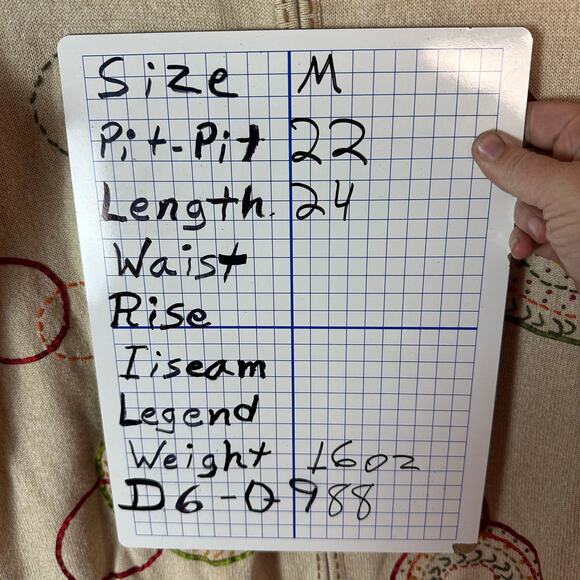 Size M
Pit-Pit 22
Length. 24
Waist
Rise
Iiseam
Legend
Weight 16oz
D6-0988